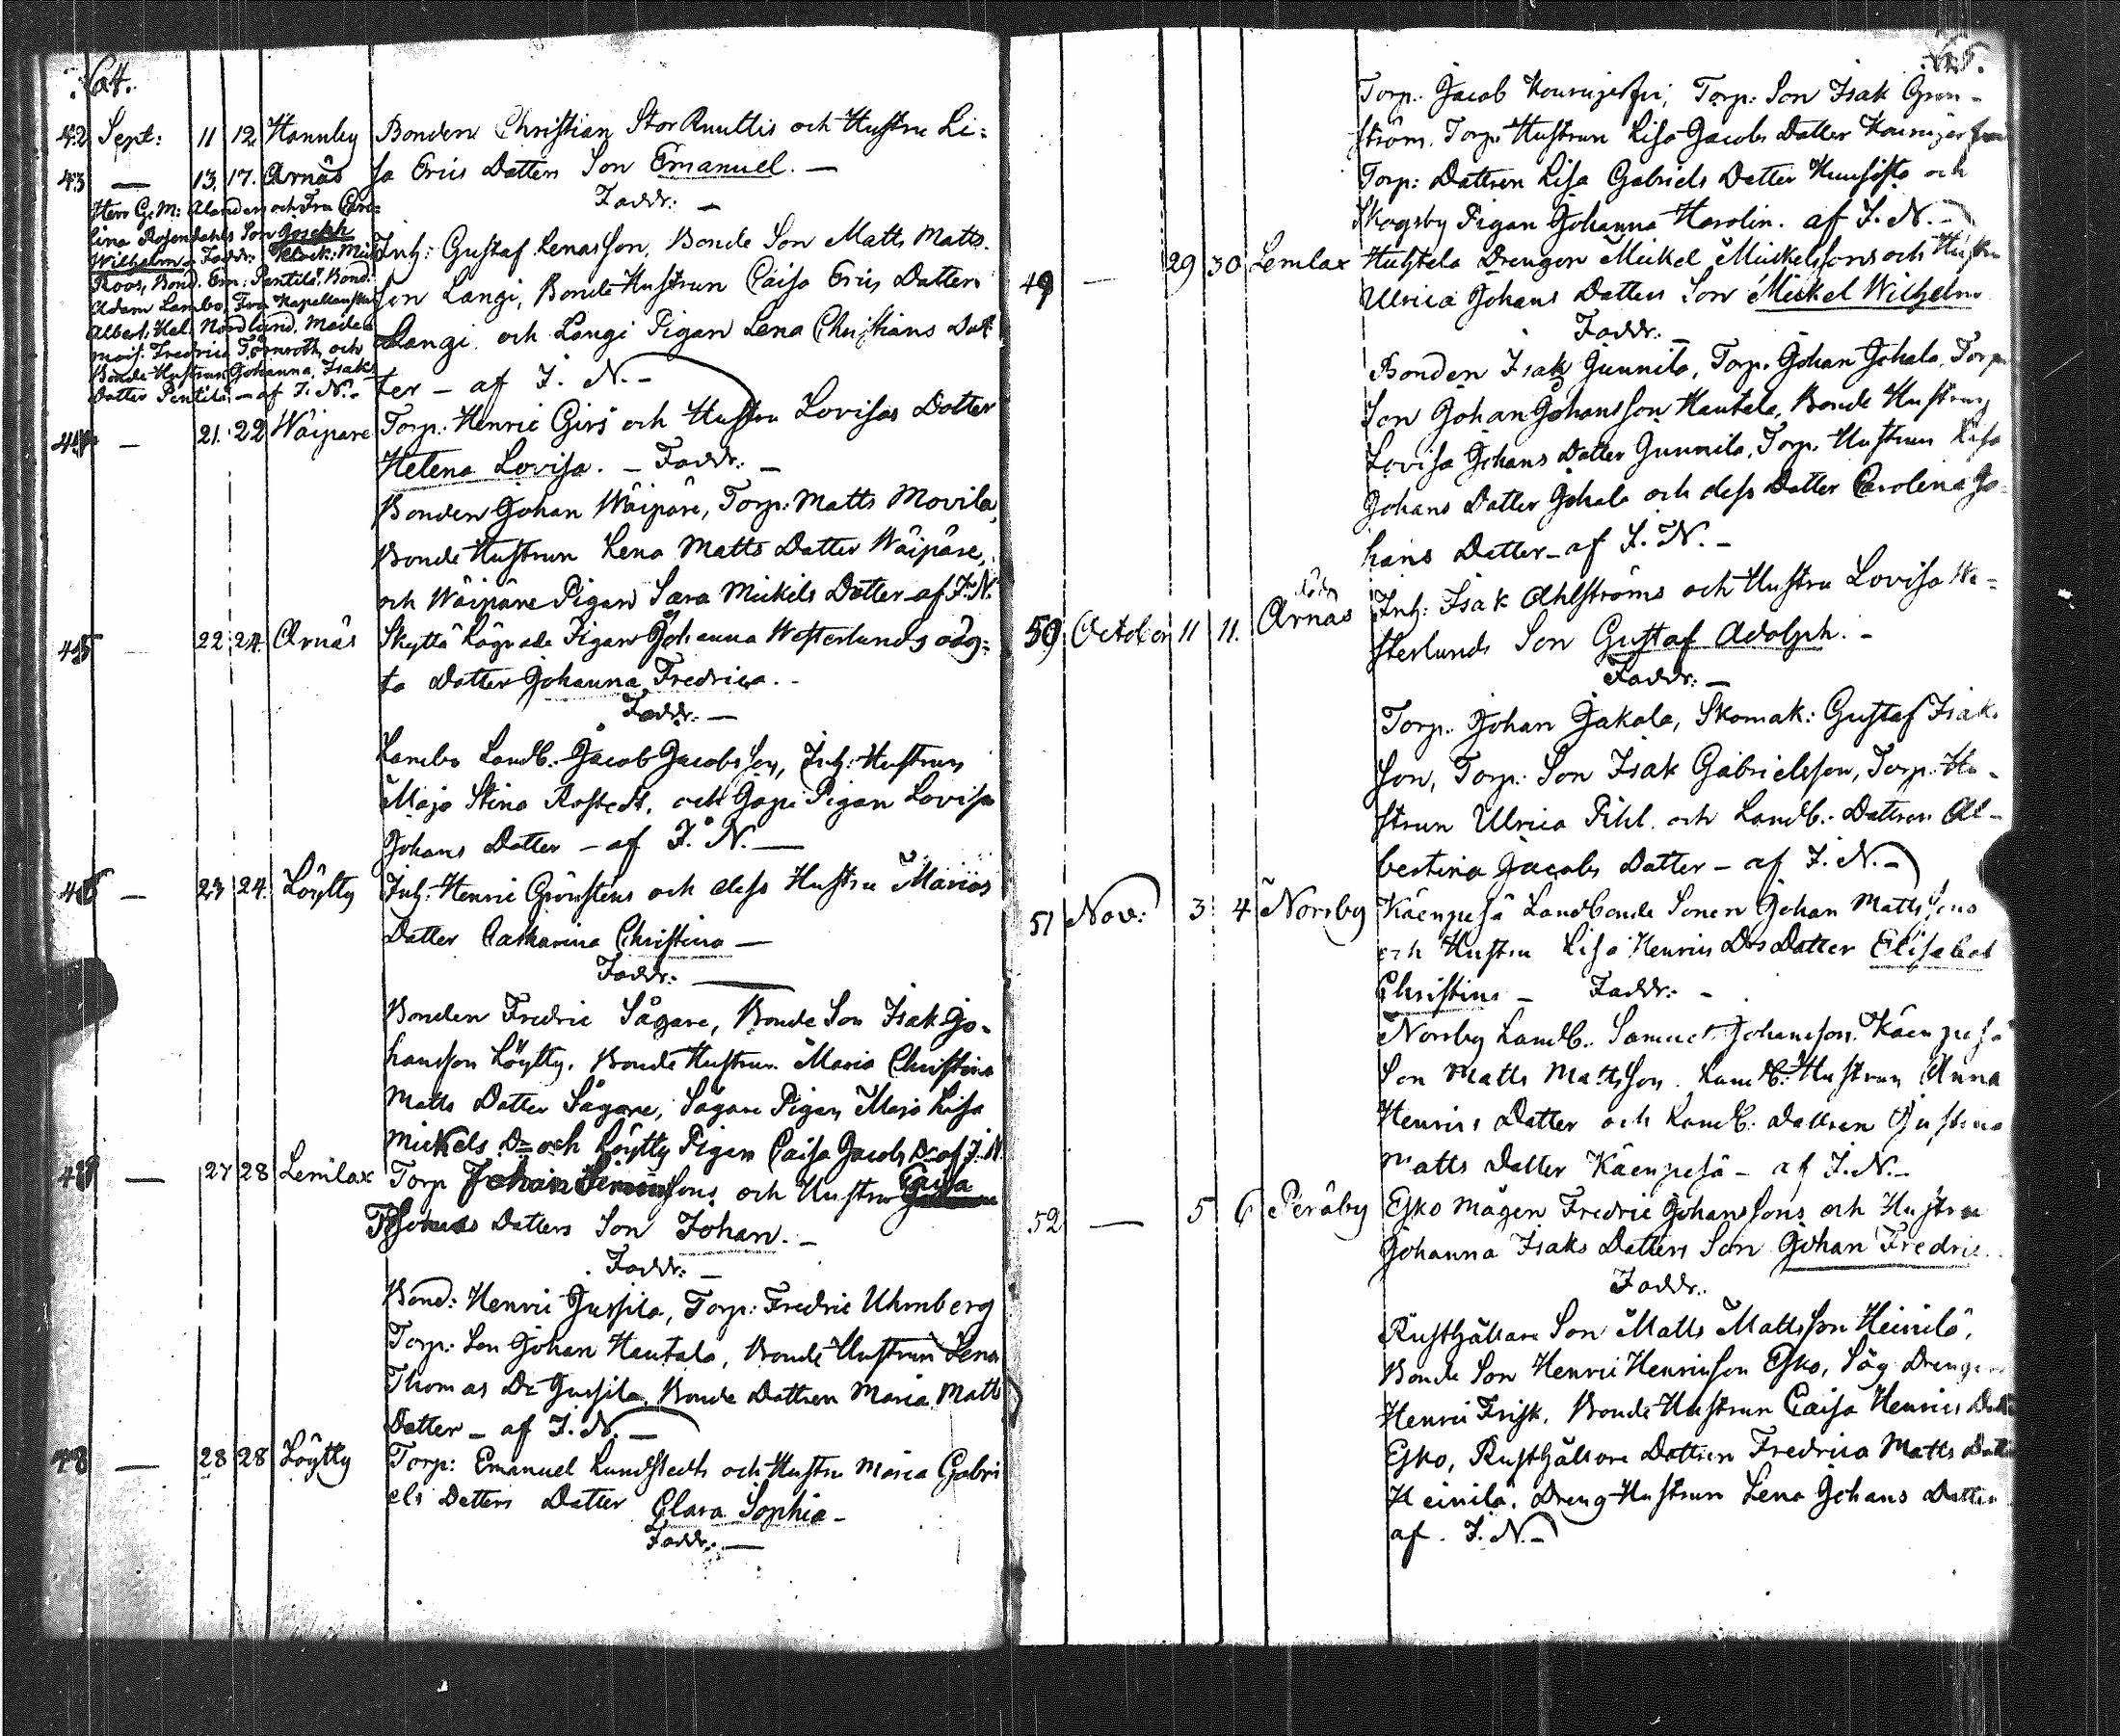 64.
42 Sept: 11 12 Hannby Bonden Christian StorKnuttis och Hustru Li=
sa Erics Datters Son Emanuel. —
Faddr: —
Inh: Gustaf Lenasson, Bonde Son Matts Matts
son Langi, Bonde Hustrun Caisa Erics Datter
Langi och Langi Pigan Lena Christians Dat
ter — af I. N. —
43 — 13. 17. Arnäs
Herr G: M: Alanders och Fru Caro=
lina Rosendahls Son Joseph
Wilhelm — Faddr: Klock: Mich
Roos, Bond. Em: Pentilä, Bond:
Adam Lambo, Fru Kapellanskan
Albert: Hel: Nordlund, Made
mois: Fredrica Törnroth, och
Bonde Hustrun Johanna Isaks
Datter Pentilä — af I. N. —
44 — 21. 22 Wäipäre Torp. Henric Girs och Hustru Lovisas Dotter
Helena Lovisa. — Faddr: —
Bonden Johan Wäipäre, Torp: Matts Movila,
Bonde Hustrun Lena Matts Datter Wäipäre,
och Wäipäre Pigan Sara Mickels Datter af I. N.
45 — 22 24. Arnäs Skyttä Lägrade Pigan Johanna Westerlunds oäg=
ta Datter Johanna Fredrica. —
Faddr: —
Lambo Landb. Jacob Jacobsson, Inh: Hustrun
Maja Stina Rostedt, och Gopi Pigan Lovisa
Johans Datter — af I. N. —
46 — 23 24. Löytty Inh: Henric Grönstens och dess Hustru Marias
Datter Catharina Christina —
Faddr: —
Bonden Fredric Sågare, Bonde Son Isak Jo=
hansson Löytty, Bonde Hustrun Maria Christina
Matts Datter Sågare, Sågare Pigan Maja Lisa
Mickels Dr och Löytty Pigan Caisa Jacobs Dr af I. N.
47 — 27 28 Lemlax Torp Johan Simonssons och Hustru Caisa
Thomas Datters Son Johan. —
Faddr: —
Bond: Henric Jussila, Torp: Fredric Uhmberg
Torp: Son Johan Hautala, Bonde Hustrun Lena
Thomas Dr Jussila, Bonde Dattren Maria Matts
Datter — af I. N. —
48 — 28 28 Löytty Torp: Emanuel Lundstedts och Hustru Maria Gabri
els Datters Datter Clara Sophia —
Faddr: —
65.
Torp. Jacob Kounijerfvi, Torp: Son Isak Grön-
ström, Torp. Hustrun Lisa Jacobs Datter Kounijerfvi
Torp: Dattren Lisa Gabriels Datter och
Skogsby Pigan Johanna Harolin. af I. N. —
49 — 29 30 Lemlax Huhtala Drengen Mickel Mickelssons och Hustru
Ulrica Johans Datters Son Mickel Wilhelm
Faddr: —
Bonden Isak Gunnila, Torp. Johan Johala, Torp
Son Johan Johansson Hautala, Bonde Hustrun
Lovisa Johans Datter Gunnila, Torp. Hustrun Lisa
Johans Datter Johala och dess Datter Carolina Jo=
hans Datter — af I. N. —
50 October 11 11. Arnäs Inh: Isak Ahlströms och Hustru Lovisa We=
sterlunds Son Gustaf Adolph. —
Faddr: —
Torp. Johan Jakala, Skomak: Gustaf Isaks
son, Torp: Son Isak Gabrielsson, Torp: Hu-
strun Ulrica Pihl. och Landb. Dattren Al-
bertina Jacobs Datter — af I. N. —
51 Nov: 3 4 Norrby Käenpesä Landbonde Sonen Johan Mattssons
och Hustru Lisa Henrics Drs Datter Elisabet
Christina — Faddr: —
Norrby Landb. Samuel Johansson, Käenpesä
Son Matts Mattsson, Landb: Hustrun Anna
Henrics Datter och Landb: dattren Justina
Matts Datter Käenpesä — af I. N. —
52 — 5 6 Peräby Esko Mågen Fredric Johanssons och Hustru
Johanna Isaks Datters Son Johan Fredric
Faddr:
Rusthållare Son Matts Mattsson Heinilä,
Bonde Son Henric Henricsson Esko, Såg Drengen
Henric Frisk, Bonde Hustrun Caisa Henrics Datter
Esko, Rusthållare Dattren Fredrica Matts Datter
Heinilä, Dreng Hustrun Lena Johans Datter
af. I. N. —